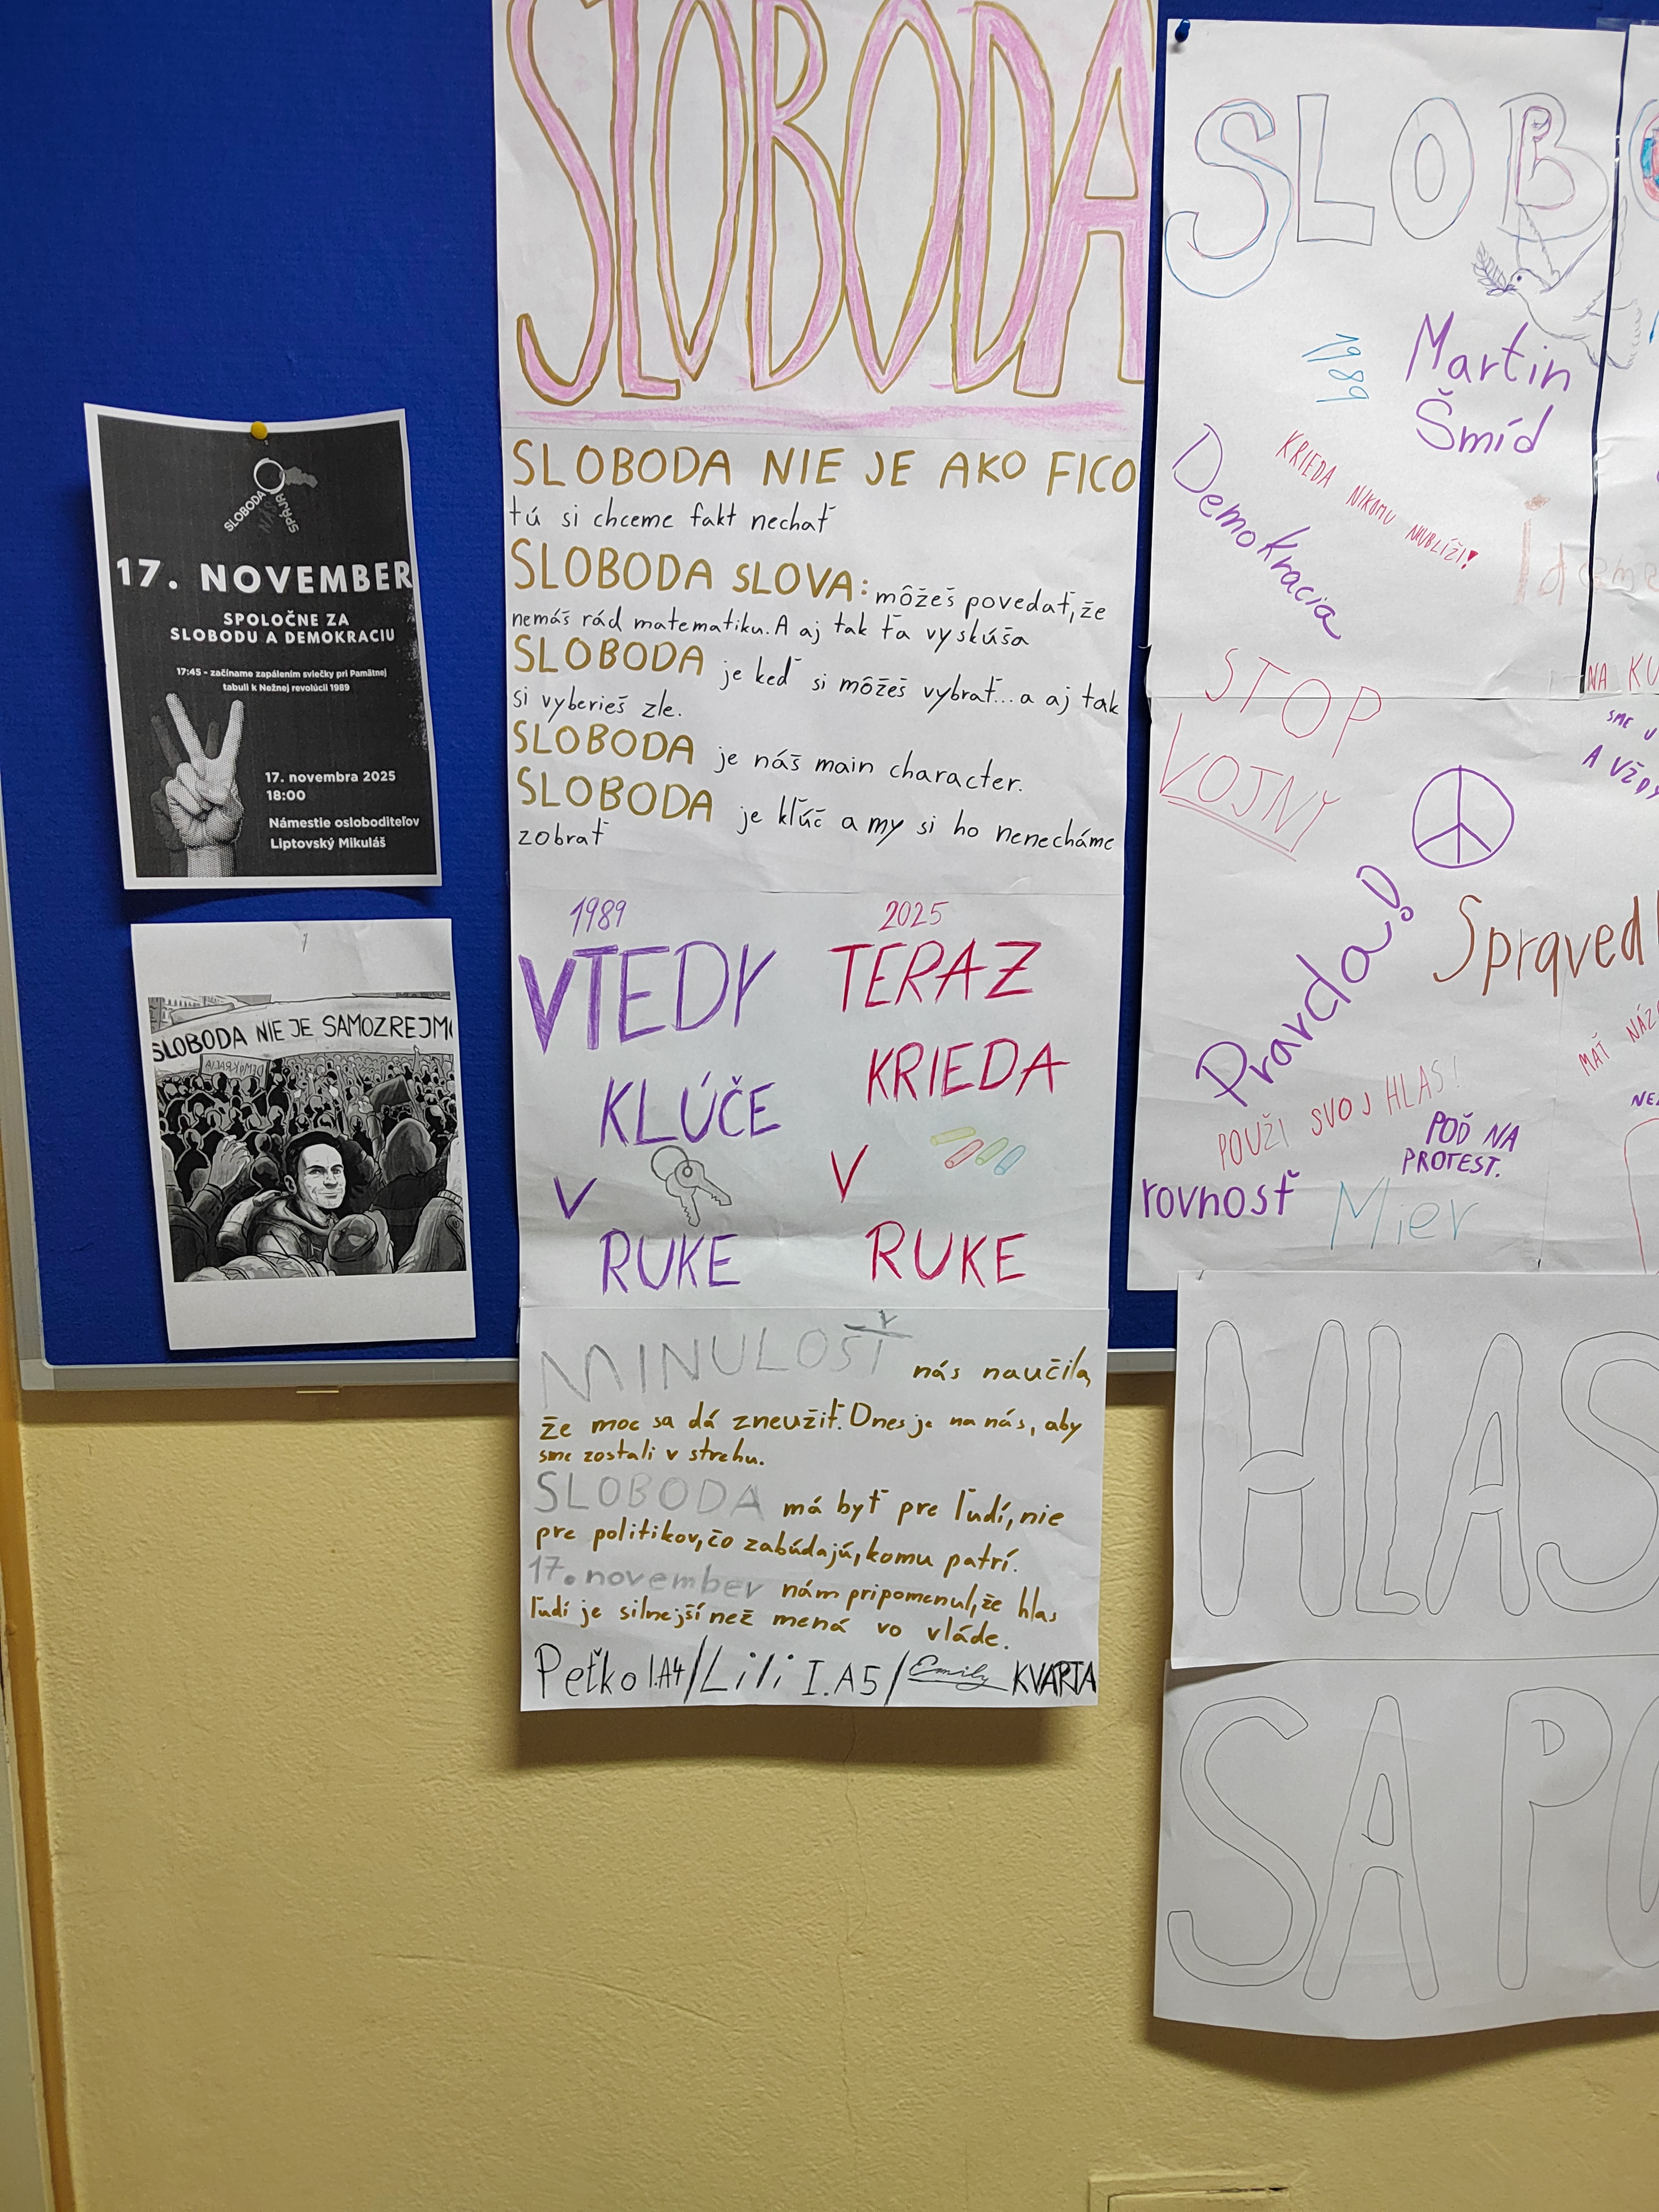 SLOBODA
SLOBODA NIE JE AKO FICO
tú si chceme fakt nechať
SLOBODA SLOVA: môžeš povedať, že
nemáš rád matematiku. A aj tak ťa vyskúša
SLOBODA je keď si môžeš vybrať... a aj tak
si vyberieš zle.
SLOBODA je náš main character.
SLOBODA je kľúč a my si ho nenecháme
zobrať
1989
VTEDY
KLÚČE
V
RUKE
2025
TERAZ
KRIEDA
V
RUKE
MINULOSŤ nás naučila,
že moc sa dá zneužiť. Dnes je na nás, aby
sme zostali v strehu.
SLOBODA má byť pre ľudí, nie
pre politikov, čo zabúdajú, komu patrí.
17. november nám pripomenul, že hlas
ľudí je silnejší než mená vo vláde.
Peťko I.A4/Lili I.A5/Emily KVARTA
SLOBODA
NÁS
SPÁJA
17. NOVEMBER
SPOLOČNE ZA
SLOBODU A DEMOKRACIU
17:45 - začíname zapálením sviečky pri Pamätnej
tabuli k Nežnej revolúcii 1989
17. novembra 2025
18:00
Námestie osloboditeľov
Liptovský Mikuláš
SLOBODA NIE JE SAMOZREJM
DEMOKRACIA
SLOB
1989
Martin
Šmíd
Demokracia
KRIEDA NIKOMU NEUBLÍŽI!
STOP
VOJNY
NA KU
SME V
A VŽDY
Pravda!
Spravedl
MAŤ NÁZO
POUŽI SVOJ HLAS!
POĎ NA
PROTEST.
rovnosť
Mier
HLAS
SAPO